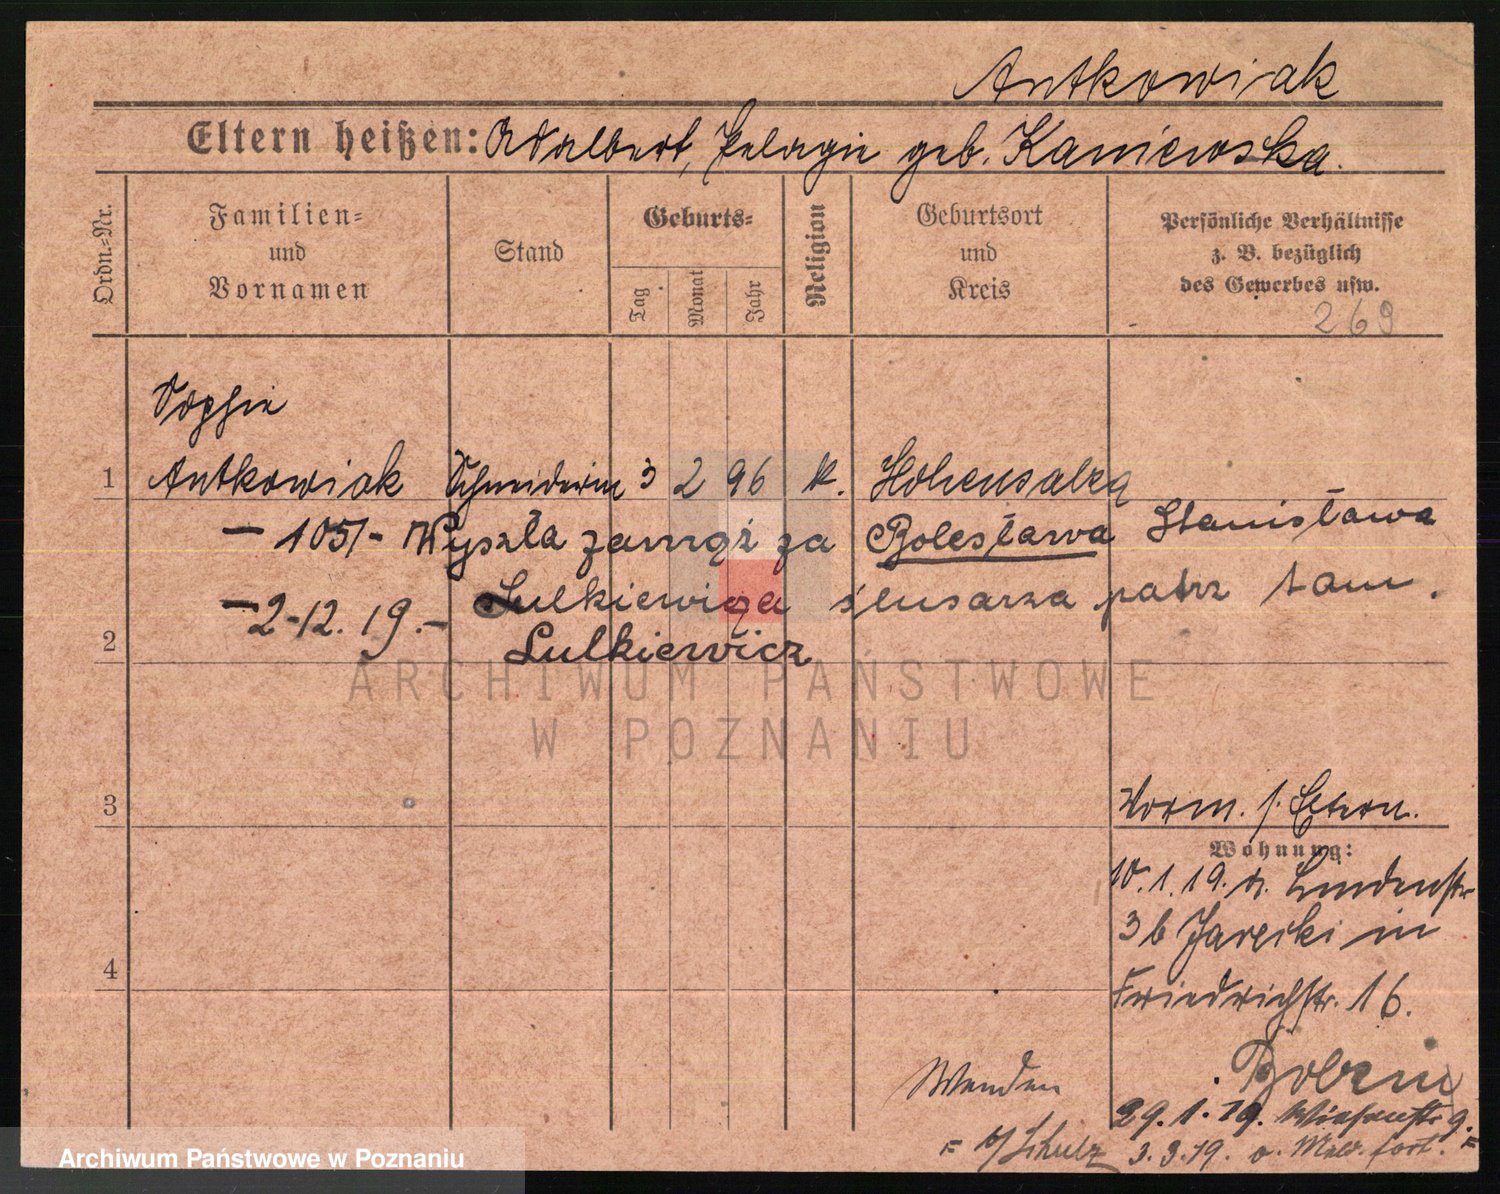 Antkowiak
Eltern heißen: Adalbert, Pelagie geb. Kaniewska.
Ordn.-Nr.
Familien-
und
Vornamen
Stand
Geburts-
Tag
Monat
Jahr
Religion
Geburtsort
und
Kreis
Persönliche Verhältnisse
z. B. bezüglich
des Gewerbes usw.
269
Sophie
1 Antkowiak Schneiderin 3 2 96 k. Hohensalza
- 105/- Wyszła zamąż za Bolesława Stanisława
-2-12.19.- Lulkiewiça ślusarza patrz tam.
2 Lulkiewicz
ARCHIWUM PAŃSTWOWE
W POZNANIU
3 Vorm. s. Eltern.
Wohnung:
10.1.19. Lindenstr
3b Jarecki in
4 Friedrichstr. 16.
Wenden
29.1.19. Wiesenstr 9.
b/Schulz 3.3.19. o. Meld. fort.
Archiwum Państwowe w Poznaniu